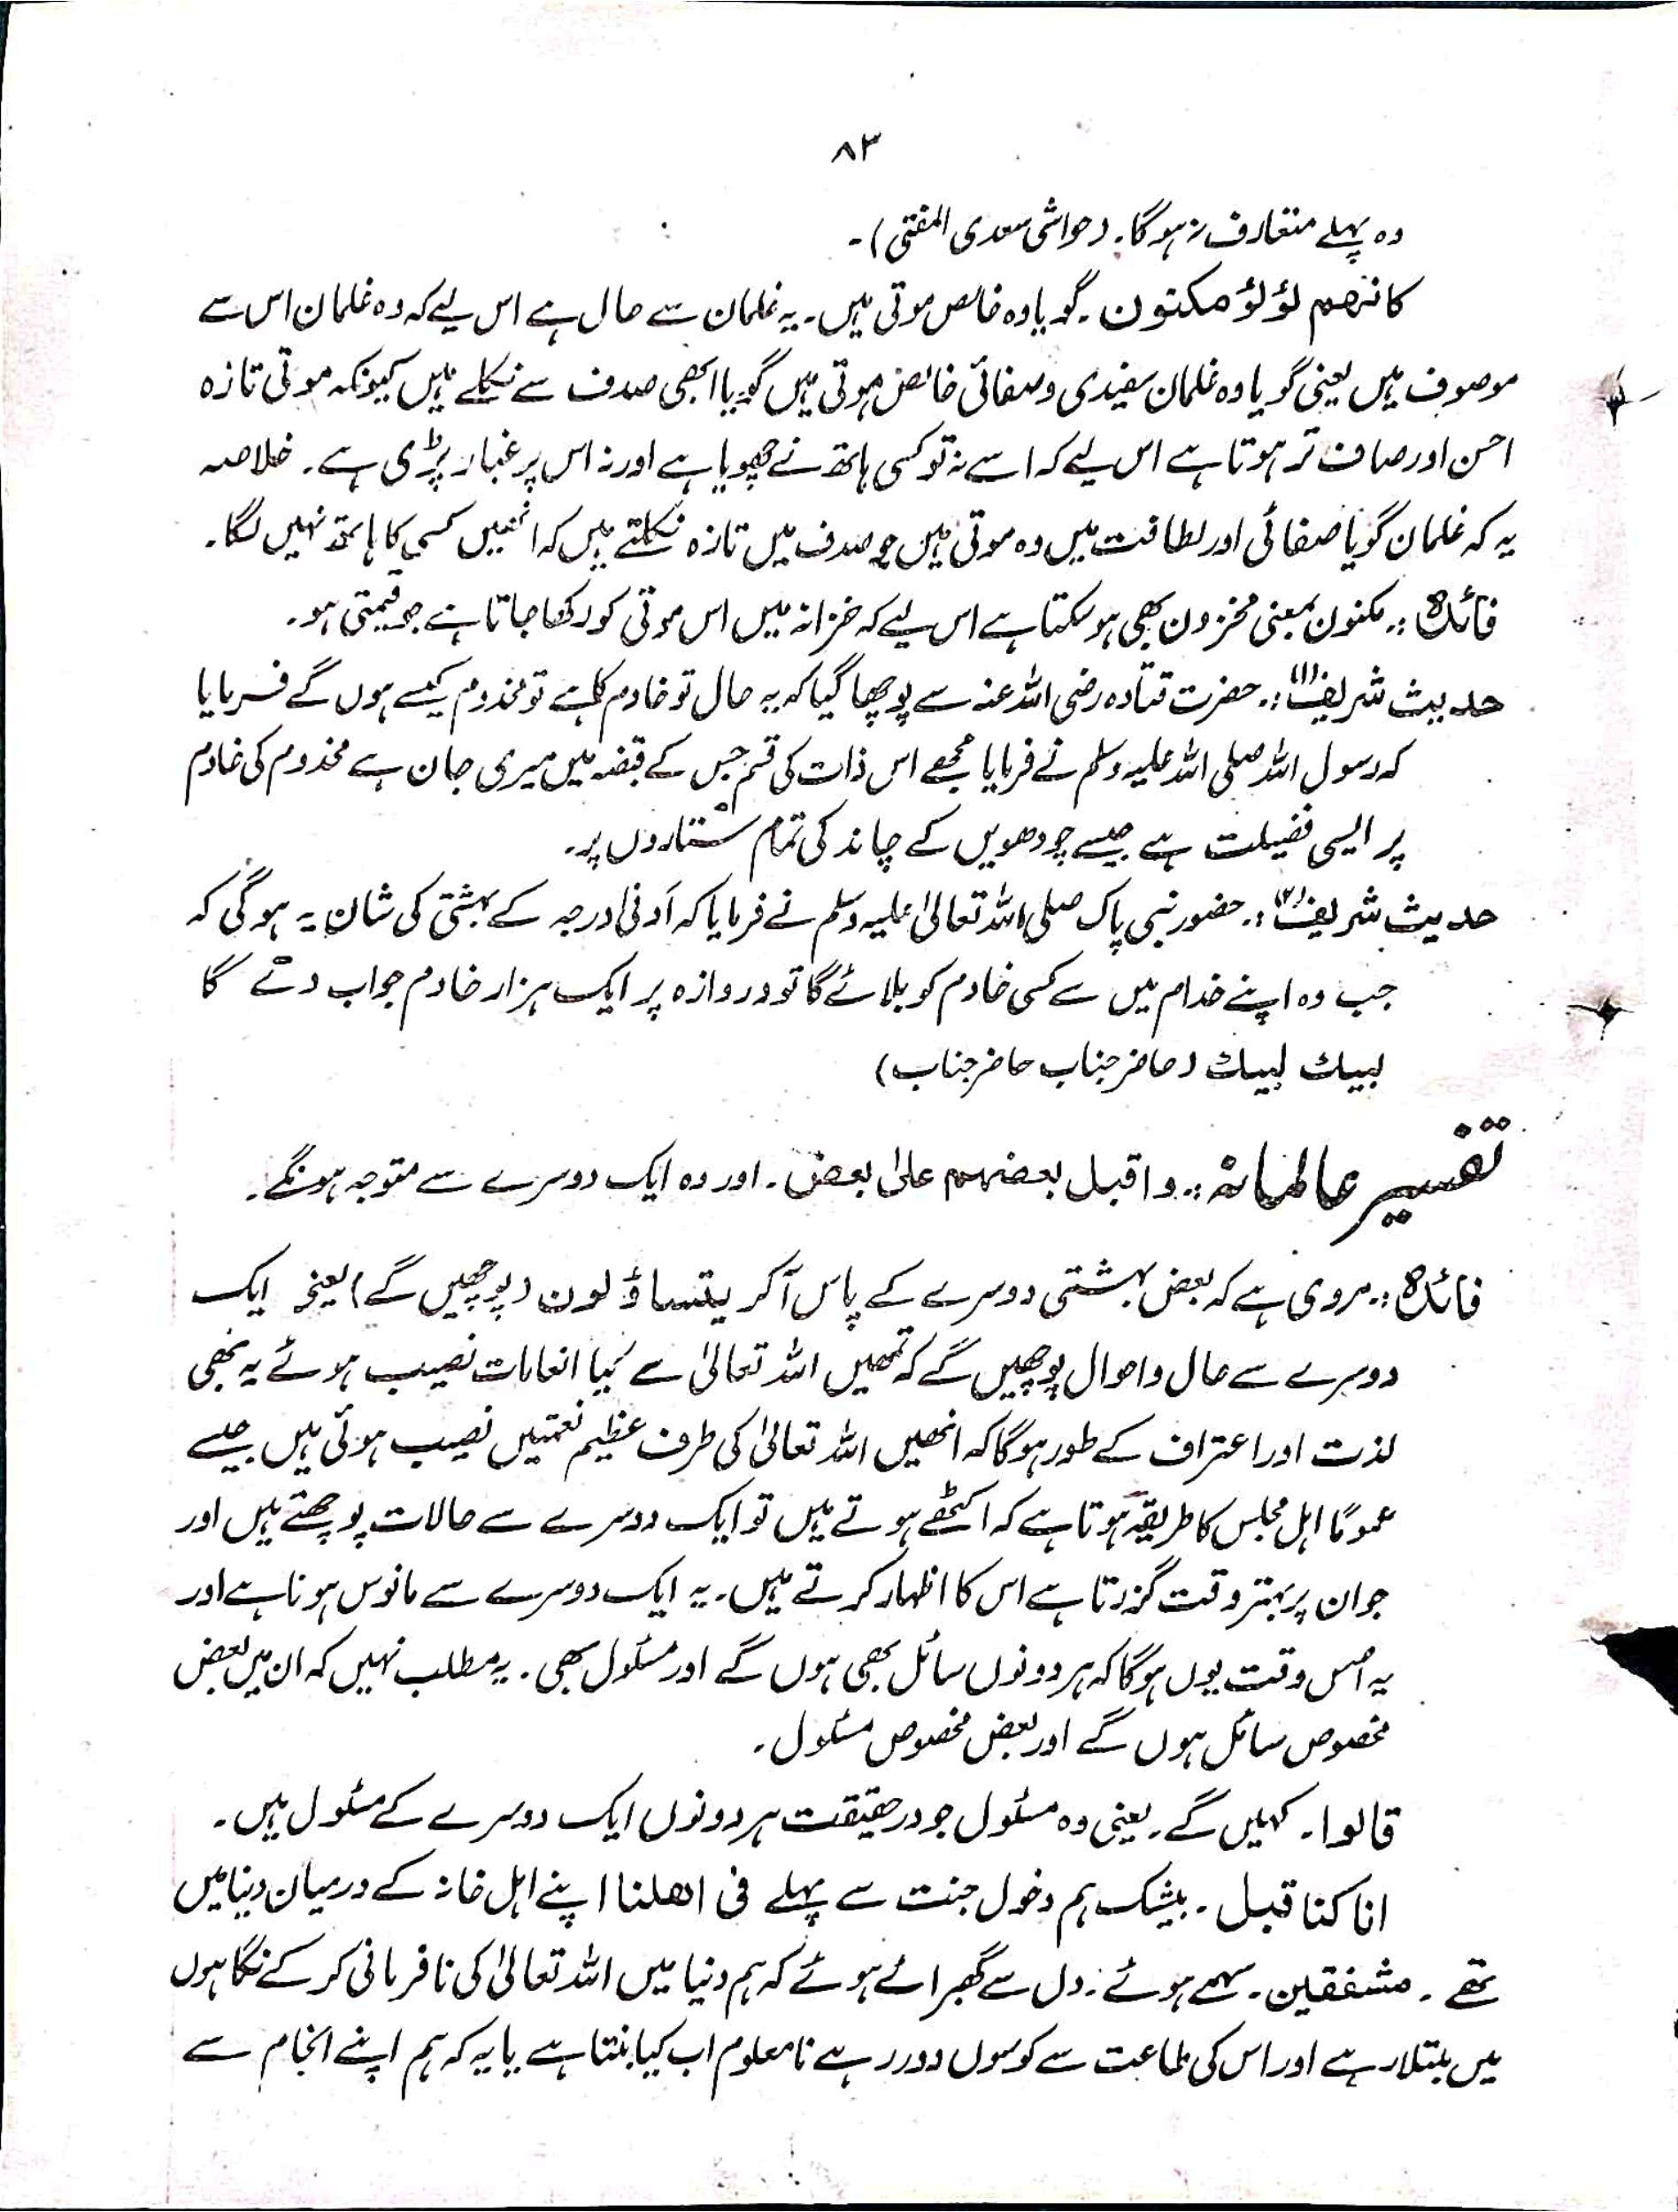 ۸۳
وہ پہلے متعارف نہ ہوگا۔ (حواشی سعدی المفتی)۔
کانھم لؤلؤ مکنون۔ گویا وہ خالص موتی ہیں۔ یہ غلمان سے حال ہے اس لیے کہ وہ غلمان اس سے
موصوف ہیں یعنی گویا وہ غلمان سفیدی و صفائی خالص موتی ہیں گویا ابھی صدف سے نکلے ہیں کیونکہ موتی تازہ
احسن اور صاف تر ہوتا ہے اس لیے کہ اسے نہ تو کسی ہاتھ نے چھویا ہے اور نہ اس پر غبار پڑی ہے۔ خلاصہ
یہ کہ غلمان گویا صفائی اور لطافت میں وہ موتی ہیں جو صدف میں تازہ نکلتے ہیں کہ انھیں کسی کا ہاتھ نہیں لگا۔
فائدہ :۔ مکنون بمعنی مخزون بھی ہوسکتا ہے اس لیے کہ خزانہ میں اس موتی کو رکھا جاتا ہے جو قیمتی ہو۔
حدیث شریف (۱) :۔ حضرت قتادہ رضی اللہ عنہ سے پوچھا گیا کہ یہ حال تو خادم کا ہے تو مخدوم کیسے ہوں گے فرمایا
کہ رسول اللہ صلی اللہ علیہ وسلم نے فرمایا مجھے اس ذات کی قسم جس کے قبضہ میں میری جان ہے مخدوم کی خادم
پر ایسی فضیلت ہے جیسے چودھویں کے چاند کی تمام ستاروں پر۔
حدیث شریف (۲) :۔ حضور نبی پاک صلی اللہ تعالیٰ علیہ وسلم نے فرمایا کہ ادنیٰ درجہ کے بہشتی کی شان یہ ہوگی کہ
جب وہ اپنے خدام میں سے کسی خادم کو بلائے گا تو دروازہ پر ایک ہزار خادم جواب دے گا
لبیک لبیک (حاضر جناب حاضر جناب)
تفسیر عالمانہ :۔ واقبل بعضھم علیٰ بعض۔ اور وہ ایک دوسرے سے متوجہ ہونگے۔
فائدہ :۔ مروی ہے کہ بعض بہشتی دوسرے کے پاس آکر یتساؤلون (پوچھیں گے) یعنی ایک
دوسرے سے حال و احوال پوچھیں گے کہ تمھیں اللہ تعالیٰ سے کیا انعامات نصیب ہوئے یہ بھی
لذت اور اعتراف کے طور ہوگا کہ انھیں اللہ تعالیٰ کی طرف عظیم نعمتیں نصیب ہوئی ہیں جیسے
عموماً اہل مجلس کا طریقہ ہوتا ہے کہ اکٹھے ہوتے ہیں تو ایک دوسرے سے حالات پوچھتے ہیں اور
جو ان پر بہتر وقت گزرتا ہے اس کا اظہار کرتے ہیں۔ یہ ایک دوسرے سے مانوس ہونا ہے اور
یہ اس وقت یوں ہوگا کہ ہر دونوں سائل بھی ہوں گے اور مسئول بھی۔ یہ مطلب نہیں کہ ان میں بعض
مخصوص سائل ہوں گے اور بعض مخصوص مسئول۔
قالوا۔ کہیں گے۔ یعنی وہ مسئول جو درحقیقت ہر دونوں ایک دوسرے کے مسئول ہیں۔
انا کنا قبل۔ بیشک ہم دخول جنت سے پہلے فی اھلنا اپنے اہل خانہ کے درمیان دنیا میں
تھے۔ مشفقین۔ سہمے ہوئے۔ دل سے گھبرائے ہوئے کہ ہم دنیا میں اللہ تعالیٰ کی نافرمانی کرکے گناہوں
میں مبتلا رہے اور اس کی طاعت سے کوسوں دور رہے نامعلوم اب کیا بنتا ہے یا یہ کہ ہم اپنے انجام سے